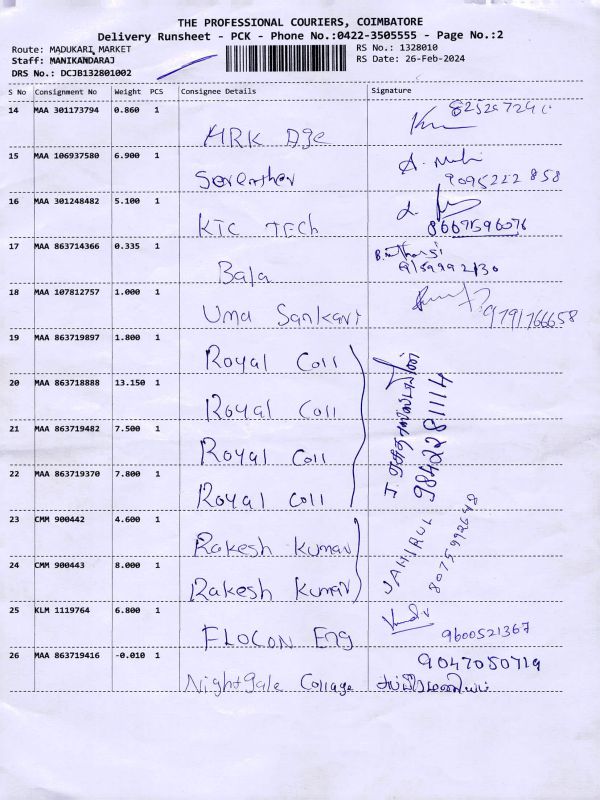 THE PROFESSIONAL COURIERS, COIMBATORE
Delivery Runsheet - PCK - Phone No.:0422-3505555 - Page No.:2
Route: MADUKARI MARKET
RS No.: 1328010
Staff: MANIKANDARAJ
RS Date: 26-Feb-2024
DRS No.: DCJB132801002
S No Consignment No Weight PCS Consignee Details Signature
14 MAA 301173794 0.860 1
MRK Age
15 MAA 106937580 6.900 1
9095222 858
16 MAA 301248482 5.100 1
KTC TECh
8667596076
17 MAA 863714366 0.335 1
Bala
18 MAA 107812757 1.000 1
Uma Sankari
9791766658
19 MAA 863719897 1.800 1
Royal Coll
20 MAA 863718888 13.150 1
Royal Coll
21 MAA 863719482 7.500 1
Royal Coll
22 MAA 863719370 7.800 1
Royal Coll
9842281114
23 CMM 900442 4.600 1
Rakesh Kumar
24 CMM 900443 8.000 1
Rakesh Kumar
JAHIRUL
8075992648
25 KLM 1119764 6.800 1
FLOCON Eng
9600521367
26 MAA 863719416 -0.010 1
9047050719
Nightgale Collage